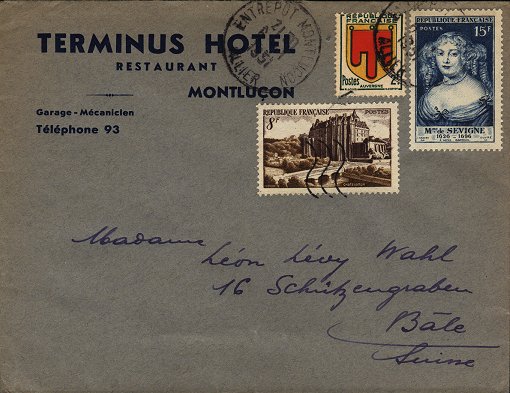 TERMINUS HOTEL
RESTAURANT
MONTLUÇON
Garage - Mécanicien
Téléphone 93
ENTREPOT MONTLUÇON
ALLIER
RÉPUBLIQUE FRANÇAISE
Postes
AUVERGNE
RÉPUBLIQUE FRANÇAISE
POSTES
15F
Mme DE SEVIGNE
1626 - 1696
RÉPUBLIQUE FRANÇAISE
POSTES
8F
CHATEAUDUN
Madame
Léon Lévy Wahl
16 Schützengraben
Bâle
Suisse